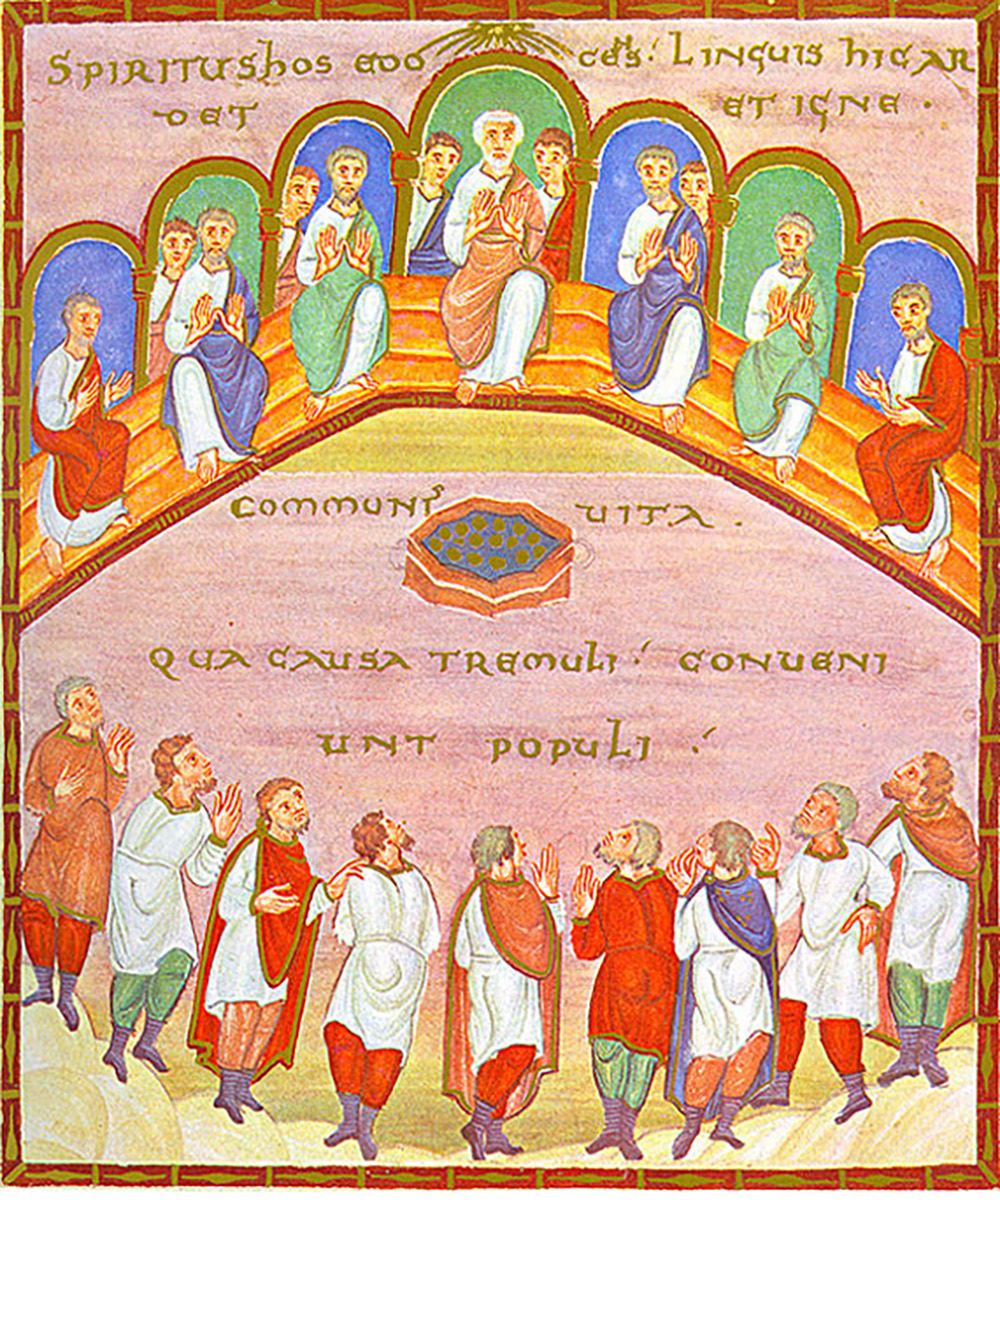 SPIRITUS hOS EDOCĒS ⸵ LINGUIS hICAR
DET ET IGNE ·
COMMUNIS UITA ·
QUA CAUSA TREMULI ⸵ CONUENI
UNT POPULI ⸵